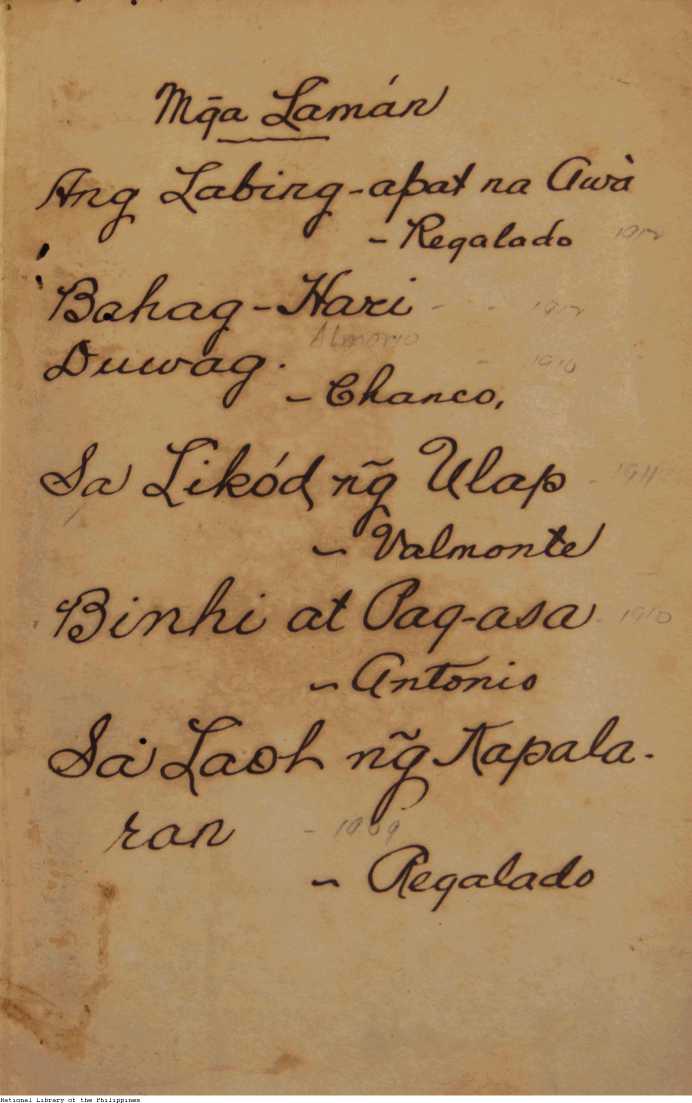 Mg̃a Lamán
Ang Labing-apat na Awà
- Regalado 1912
Bahag-Hari - - 1912
Almario
Duwag. - 1910
- Chanco,
Sa Likód ng̃ Ulap - 1911
- Valmonte
Binhi at Pag-asa - 1910
- Antonio
Sa Laot ng̃ Kapala-
ran - 1909
- Regalado
National Library of the Philippines